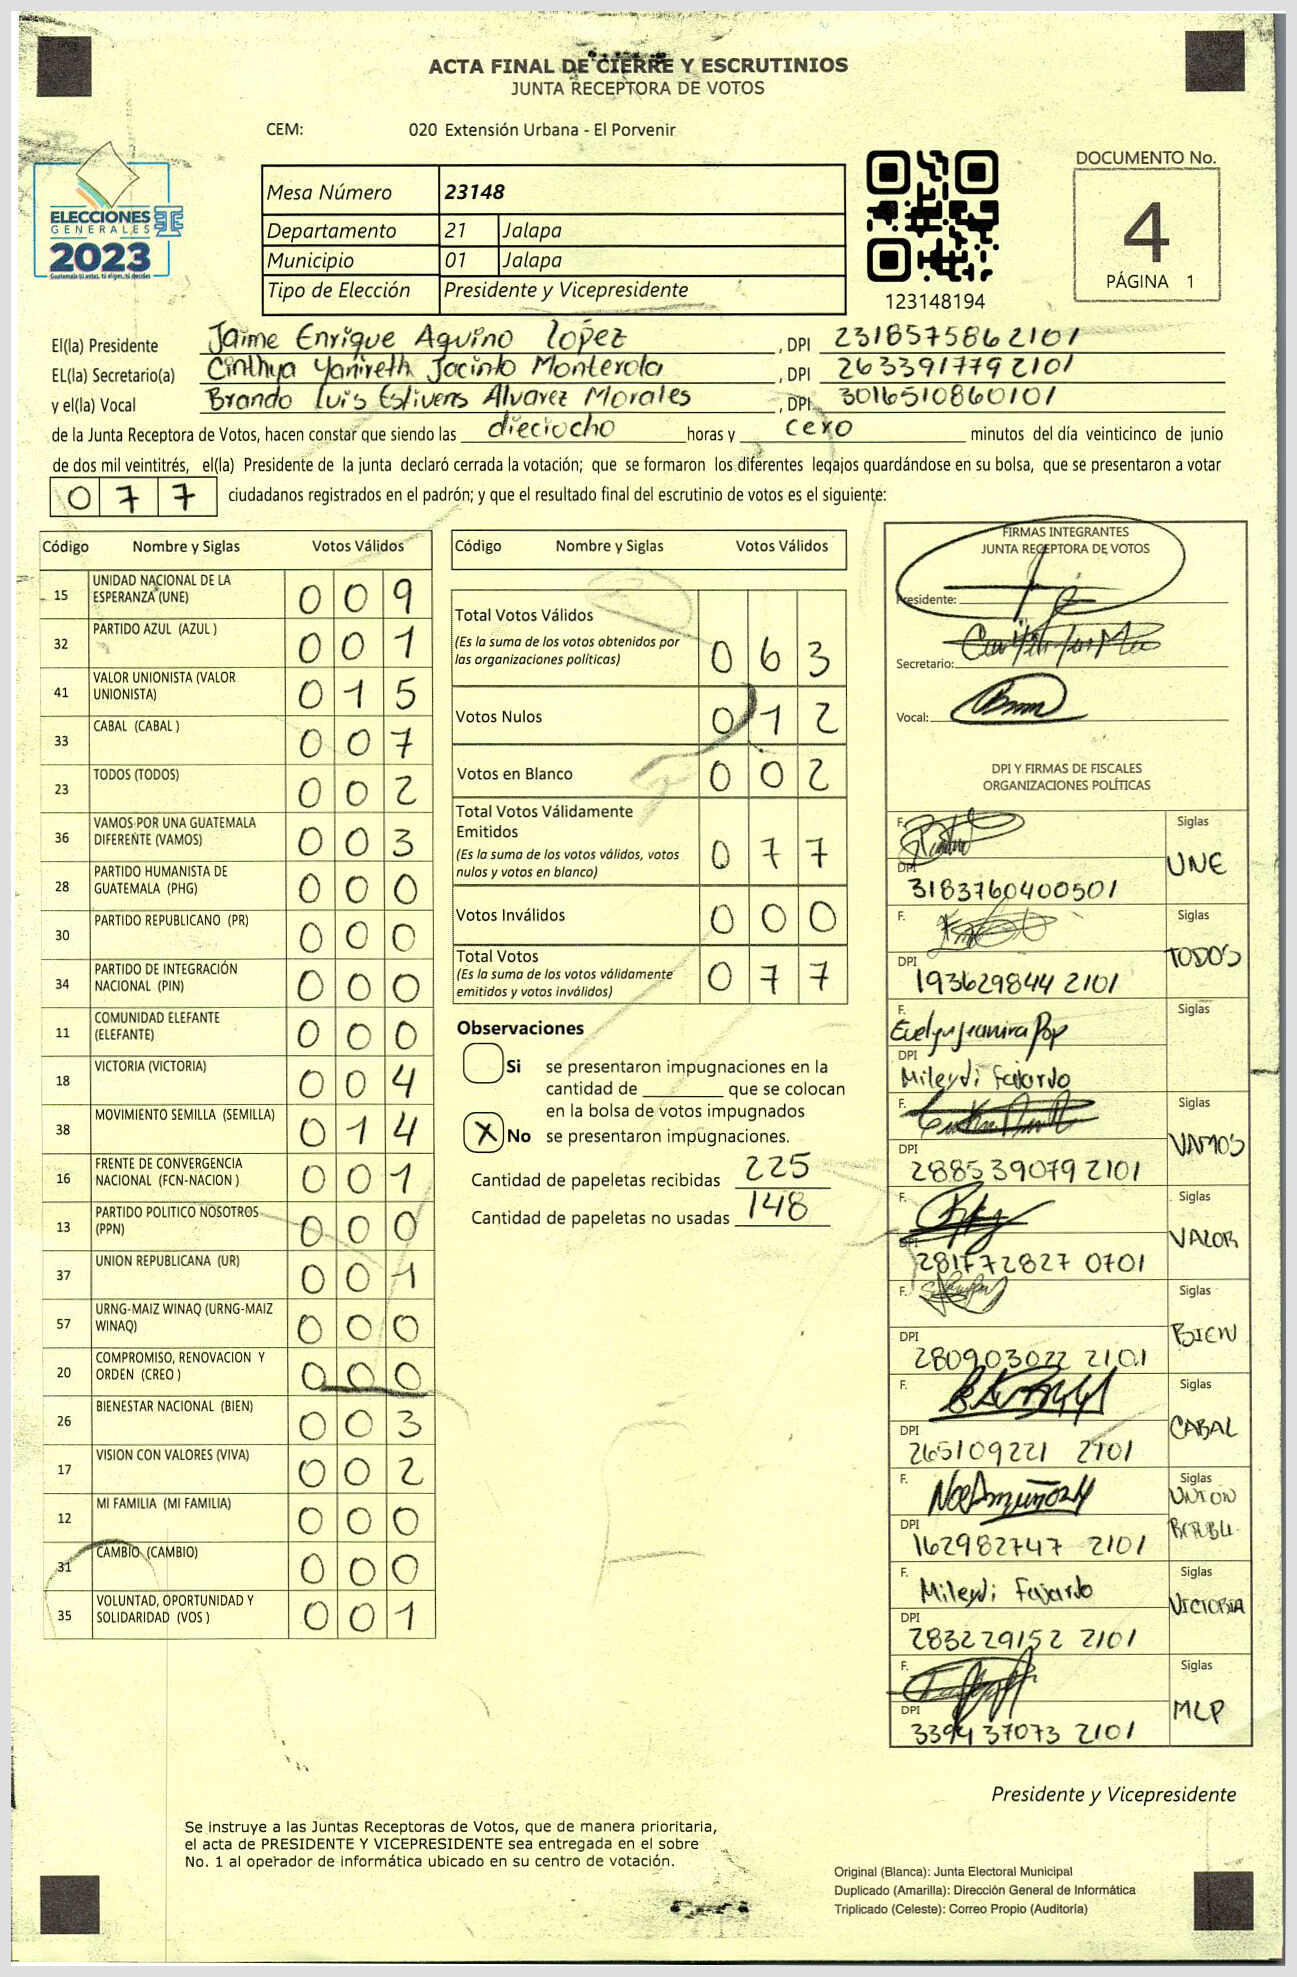 ACTA FINAL DE CIERRE Y ESCRUTINIOS
JUNTA RECEPTORA DE VOTOS
CEM: 020 Extensión Urbana - El Porvenir
ELECCIONES
GENERALES
2023
Mesa Número 23148
Departamento 21 Jalapa
Municipio 01 Jalapa
Tipo de Elección Presidente y Vicepresidente
123148194
DOCUMENTO No.
4
PÁGINA 1
El(la) Presidente Jaime Enrique Aquino López, DPI 2318575862101
EL(la) Secretario(a) Cinthya Yanireth Jacinto Monterola, DPI 2633917792101
y el(la) Vocal Brando Luis Estivens Alvarez Morales, DPI 3016510860101
de la Junta Receptora de Votos, hacen constar que siendo las dieciocho horas y cero minutos del día veinticinco de junio
de dos mil veintitrés, el(la) Presidente de la junta declaró cerrada la votación; que se formaron los diferentes legajos guardándose en su bolsa, que se presentaron a votar
077 ciudadanos registrados en el padrón; y que el resultado final del escrutinio de votos es el siguiente:
Código Nombre y Siglas Votos Válidos
15 UNIDAD NACIONAL DE LA ESPERANZA (UNE) 009
32 PARTIDO AZUL (AZUL ) 001
41 VALOR UNIONISTA (VALOR UNIONISTA) 015
33 CABAL (CABAL ) 007
23 TODOS (TODOS) 002
36 VAMOS POR UNA GUATEMALA DIFERENTE (VAMOS) 003
28 PARTIDO HUMANISTA DE GUATEMALA (PHG) 000
30 PARTIDO REPUBLICANO (PR) 000
34 PARTIDO DE INTEGRACIÓN NACIONAL (PIN) 000
11 COMUNIDAD ELEFANTE (ELEFANTE) 000
18 VICTORIA (VICTORIA) 004
38 MOVIMIENTO SEMILLA (SEMILLA) 014
16 FRENTE DE CONVERGENCIA NACIONAL (FCN-NACION ) 001
13 PARTIDO POLITICO NOSOTROS (PPN) 000
37 UNION REPUBLICANA (UR) 001
57 URNG-MAIZ WINAQ (URNG-MAIZ WINAQ) 000
20 COMPROMISO, RENOVACION Y ORDEN (CREO ) 000
26 BIENESTAR NACIONAL (BIEN) 003
17 VISION CON VALORES (VIVA) 002
12 MI FAMILIA (MI FAMILIA) 000
31 CAMBIO (CAMBIO) 000
35 VOLUNTAD, OPORTUNIDAD Y SOLIDARIDAD (VOS ) 001
Código Nombre y Siglas Votos Válidos
Total Votos Válidos
(Es la suma de los votos obtenidos por las organizaciones políticas) 063
Votos Nulos 012
Votos en Blanco 002
Total Votos Válidamente Emitidos
(Es la suma de los votos válidos, votos nulos y votos en blanco) 077
Votos Inválidos 000
Total Votos
(Es la suma de los votos válidamente emitidos y votos inválidos) 077
Observaciones
Si se presentaron impugnaciones en la
cantidad de ________ que se colocan
en la bolsa de votos impugnados
X No se presentaron impugnaciones.
Cantidad de papeletas recibidas 225
Cantidad de papeletas no usadas 148
FIRMAS INTEGRANTES
JUNTA RECEPTORA DE VOTOS
Presidente:
Secretario:
Vocal:
DPI Y FIRMAS DE FISCALES
ORGANIZACIONES POLÍTICAS
F. Siglas
DPI 3183760400501 UNE
F. Siglas
DPI 193629844 2101 TODOS
F. Siglas
DPI Mileydi Fajardo
F. Siglas
DPI 288539079 2101 VAMOS
F. Siglas
DPI 281772827 0701 VALOR
F. Siglas
DPI 280903022 2101 BIEN
F. Siglas
DPI 265109221 2101 CABAL
F. Siglas
DPI 162982747 2101 UNION
F. Mileydi Fajardo Siglas
DPI 283229152 2101 VICTORIA
F. Siglas
DPI 339437073 2101 MLP
Presidente y Vicepresidente
Se instruye a las Juntas Receptoras de Votos, que de manera prioritaria,
el acta de PRESIDENTE Y VICEPRESIDENTE sea entregada en el sobre
No. 1 al operador de informática ubicado en su centro de votación.
Original (Blanca): Junta Electoral Municipal
Duplicado (Amarilla): Dirección General de Informática
Triplicado (Celeste): Correo Propio (Auditoría)